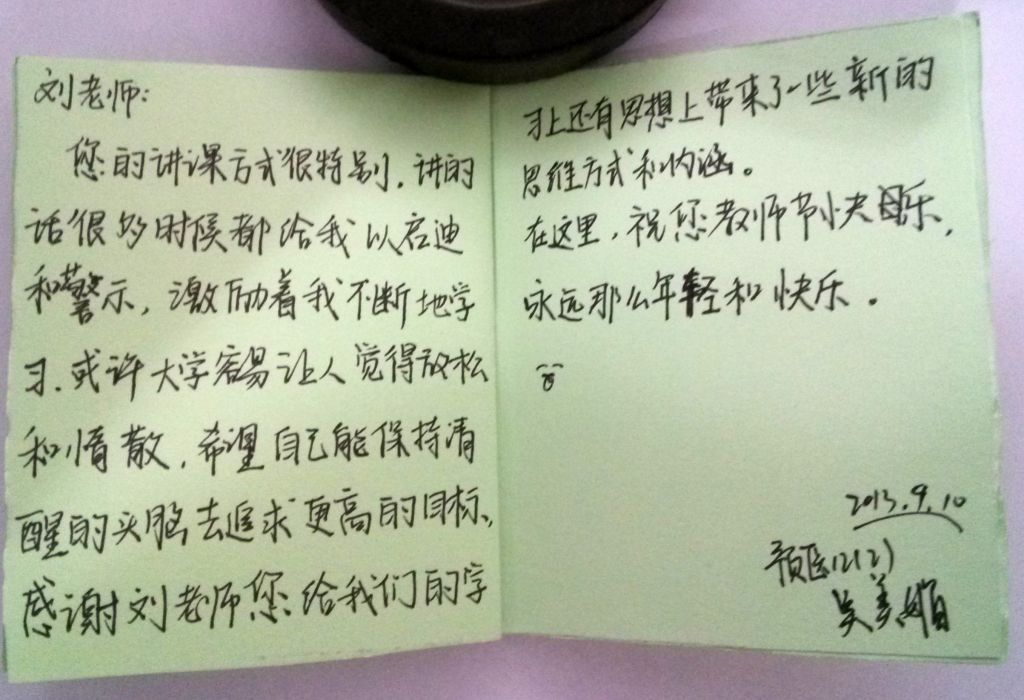 刘老师：
您的讲课方式很特别，讲的
话很多时候都给我以启迪
和警示，激励着我不断地学
习．或许大学容易让人觉得放松
和惰散，希望自己能保持清
醒的头脑去追求更高的目标、
感谢刘老师您给我们的学
习上还有思想上带来了一些新的
思维方式和内涵。
在这里，祝您教师节快乐，
永远那么年轻和快乐。
2013.9.10
预医12(2)
吴美